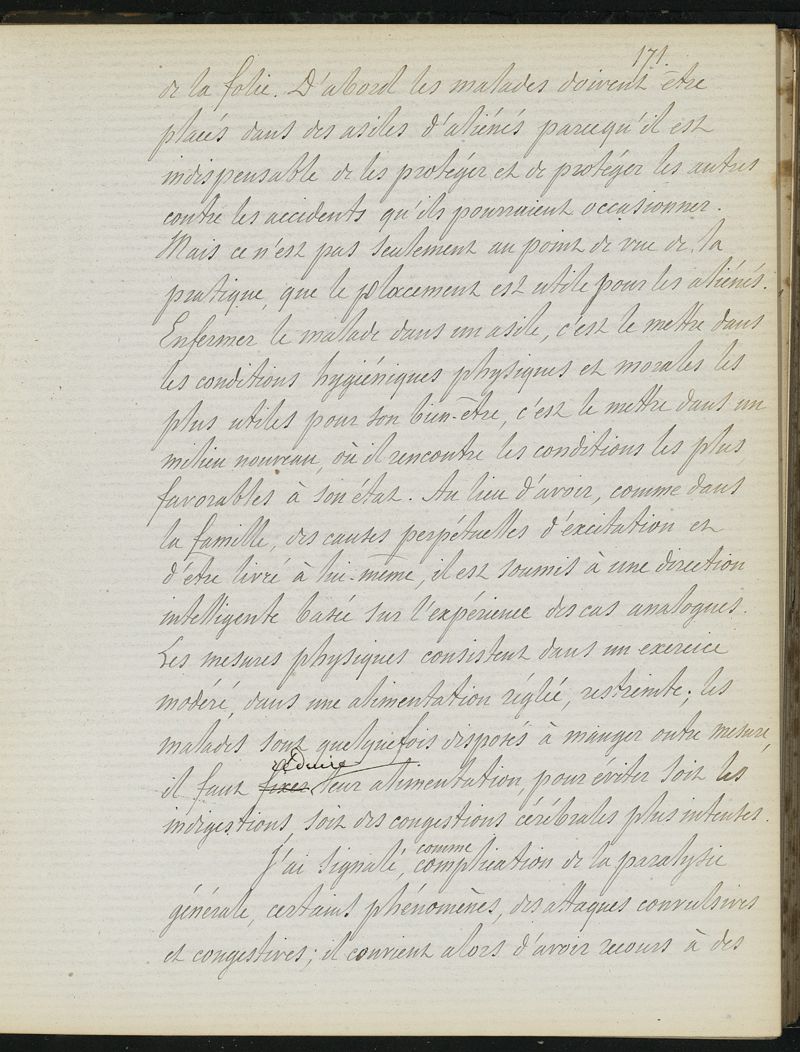 171.
de la folie. D'abord les malades doivent être
placés dans des asiles d'aliénés parcequ'il est
indispensable de les protéger et de protéger les autres
contre les accidents qu'ils pourraient occasionner.
Mais ce n'est pas seulement au point de vue de la
pratique, que le placement est utile pour les aliénés.
Enfermer le malade dans un asile, c'est le mettre dans
les conditions hygiéniques physiques et morales les
plus utiles pour son bien-être, c'est le mettre dans un
milieu nouveau, où il rencontre les conditions les plus
favorables à son état. Au lieu d'avoir, comme dans
la famille, des causes perpétuelles d'excitation et
d'être livré à lui-même, il est soumis à une direction
intelligente basée sur l'expérience des cas analogues.
Les mesures physiques consistent dans un exercice
modéré, dans une alimentation réglée, restreinte; les
malades sont quelquefois disposés à manger outre mesure,
réduire
il faut fixer leur alimentation, pour éviter soit les
indigestions, soit des congestions cérébrales plus intenses.
comme
J'ai signalé, complication de la paralysie
générale, certains phénomènes, des attaques convulsives
et congestives; il convient alors d'avoir recours à des